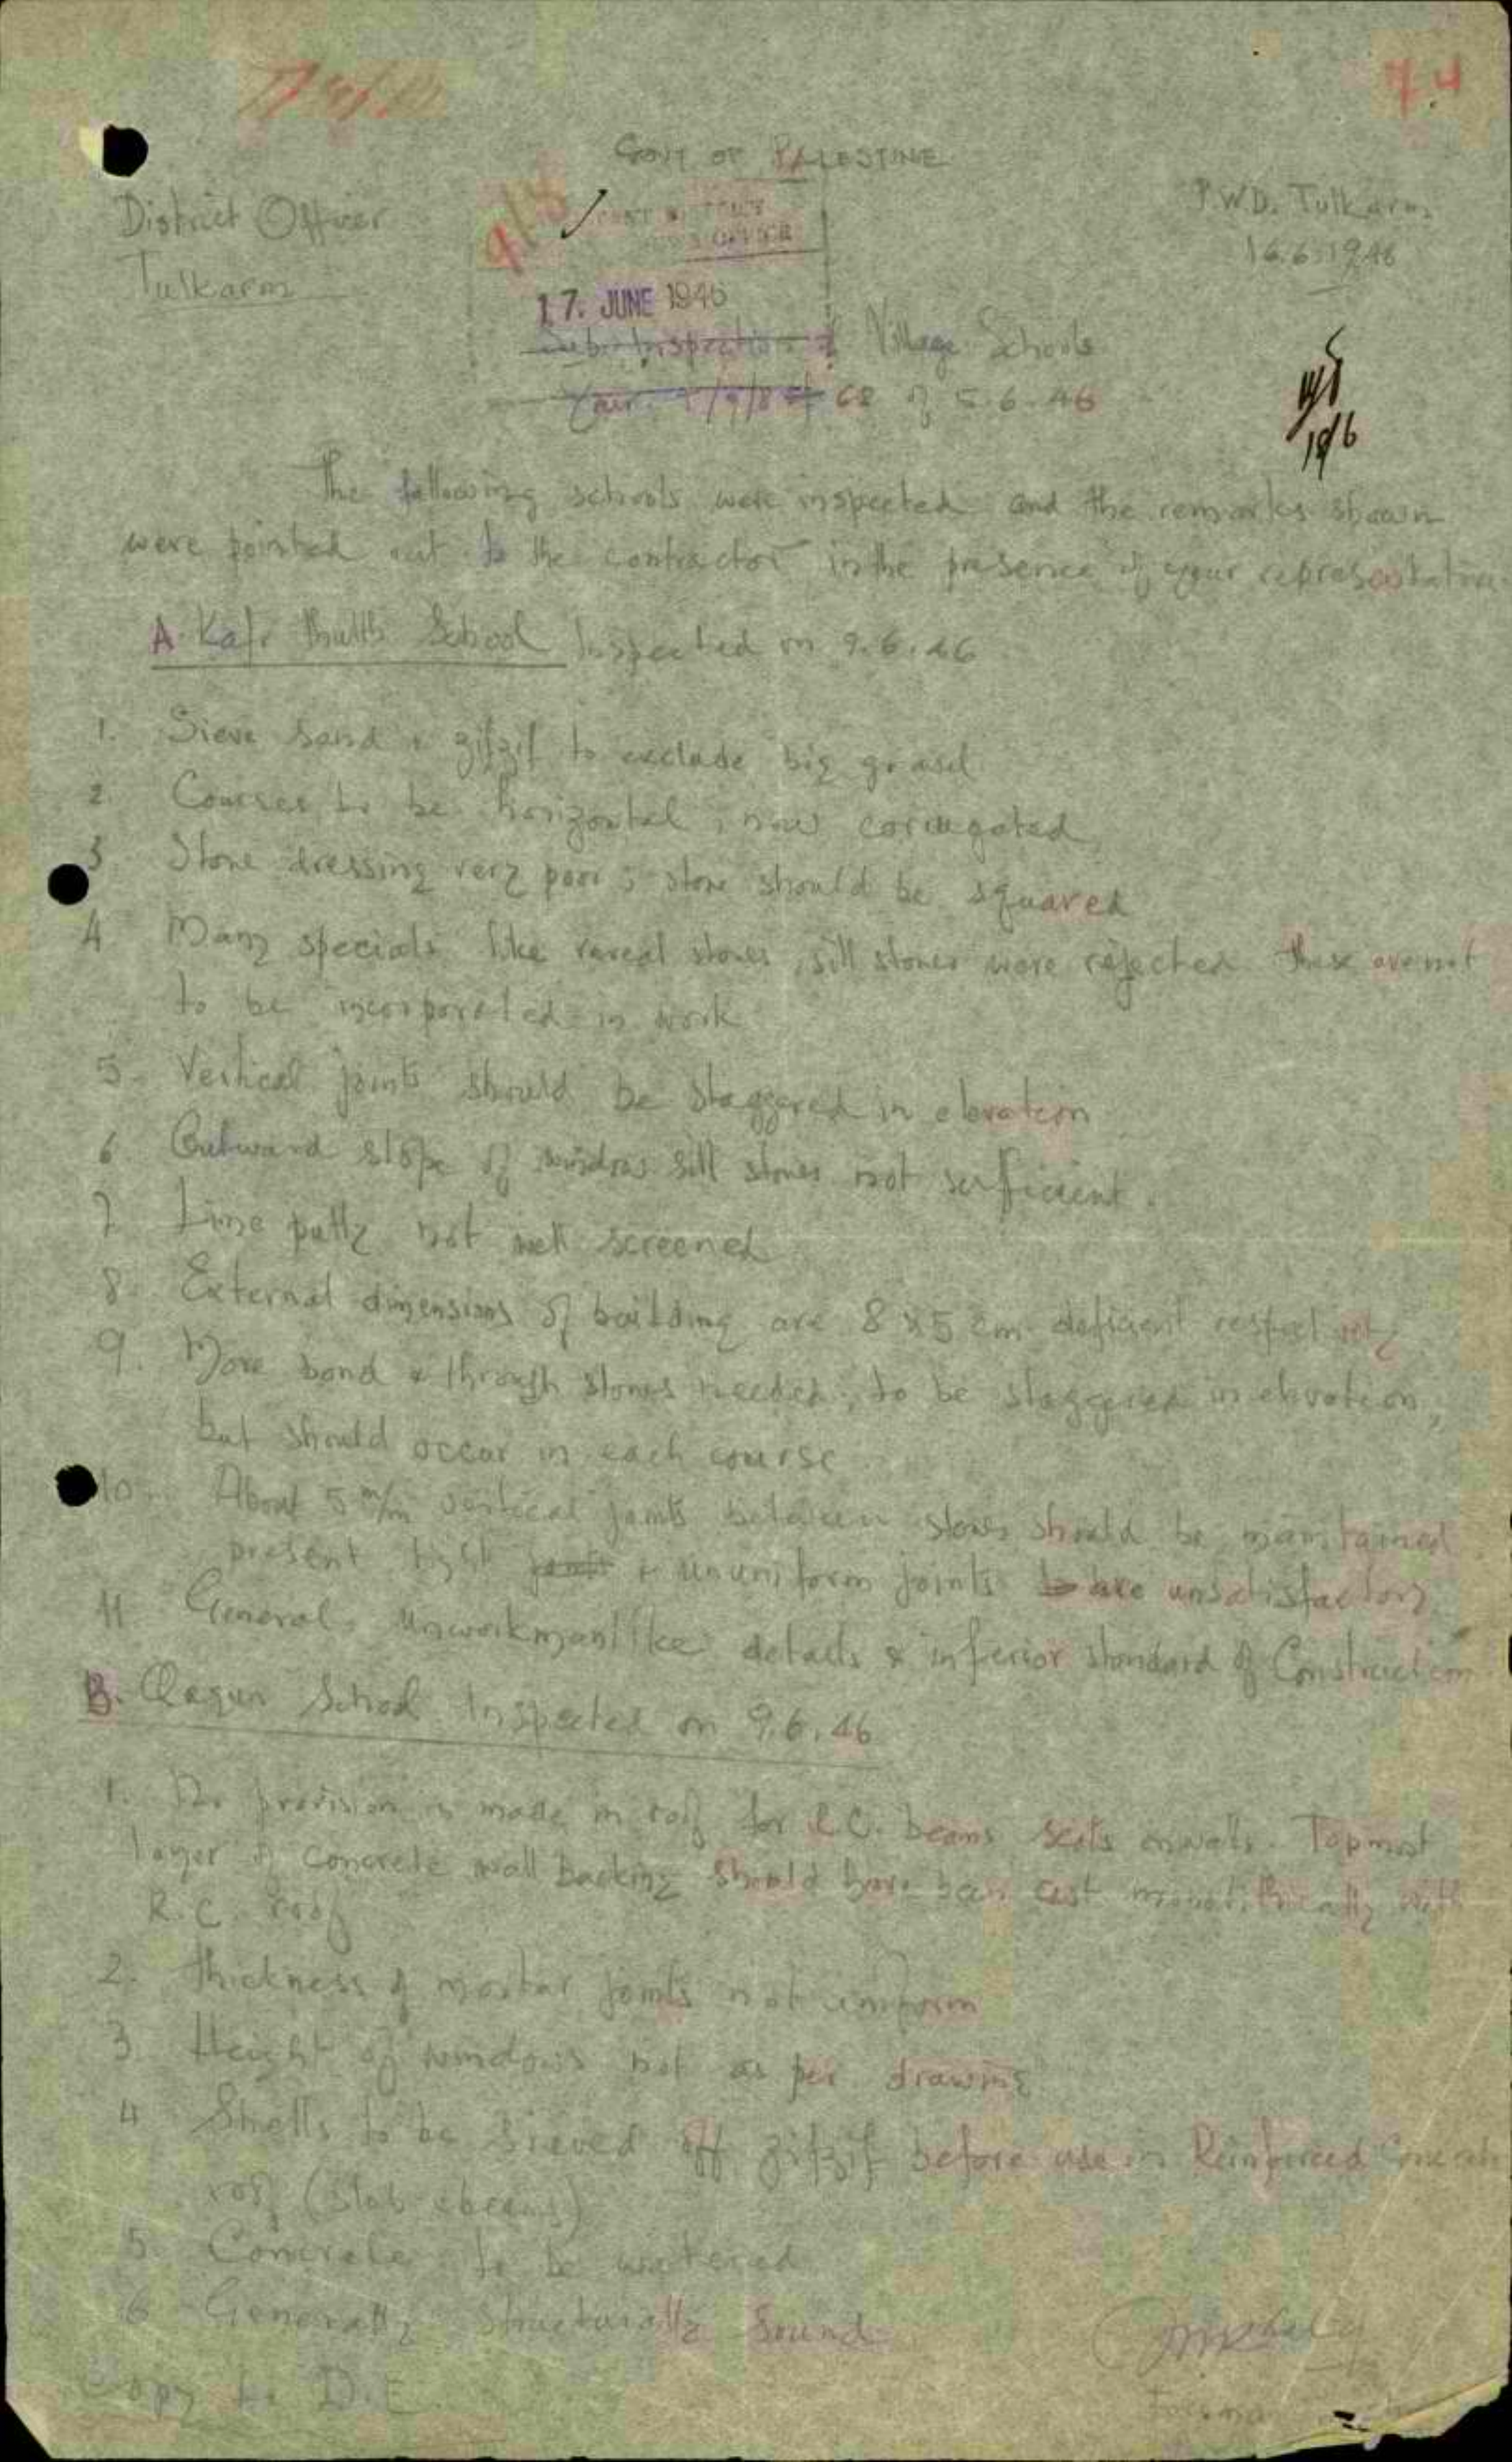 74
GOVT OF PALESTINE
District Officer
P.W.D. Tulkarm
Tulkarm
16.6.1946
17. JUNE 1946
Sub: Inspection of Village Schools
18/6
68 of 5.6.46
The following schools were inspected and the remarks shown
were pointed out to the contractor in the presence of your representative
A. Kafr Thulth School Inspected on 9.6.46
1. Sieve sand & zifzif to exclude big gravel
2. Courses to be horizontal, now corrugated
3 Stone dressing very poor; stone should be squared
4 Many specials like reveal stones, sill stones were rejected these are not
to be incorporated in work
5. Vertical joints should be staggered in elevation
6 Outward slope of window sill stones not sufficient.
7 Lime putty not well screened
8. External dimensions of building are 8 x 5 cm deficient respectively
9. More bond & through stones needed; to be staggered in elevation,
but should occur in each course
10. About 5 m/m vertical joints between stones should be maintained
present tight joints & ununiform joints are unsatisfactory
11 General unworkmanlike details & inferior standard of Construction
B. Qaqun School Inspected on 9.6.46
1. No provision is made in roof for R.C. beams seats on walls. Topmost
layer of concrete wall backing should have been cast monolithically with
R.C. roof
2. Thickness of mortar joints not uniform
3. Height of windows not as per drawing
4 Shells to be sieved off zifzif before use in Reinforced Concrete
roof (slab & beams)
5. Concrete to be watered
6 Generally structurally sound
Copy to D.E.